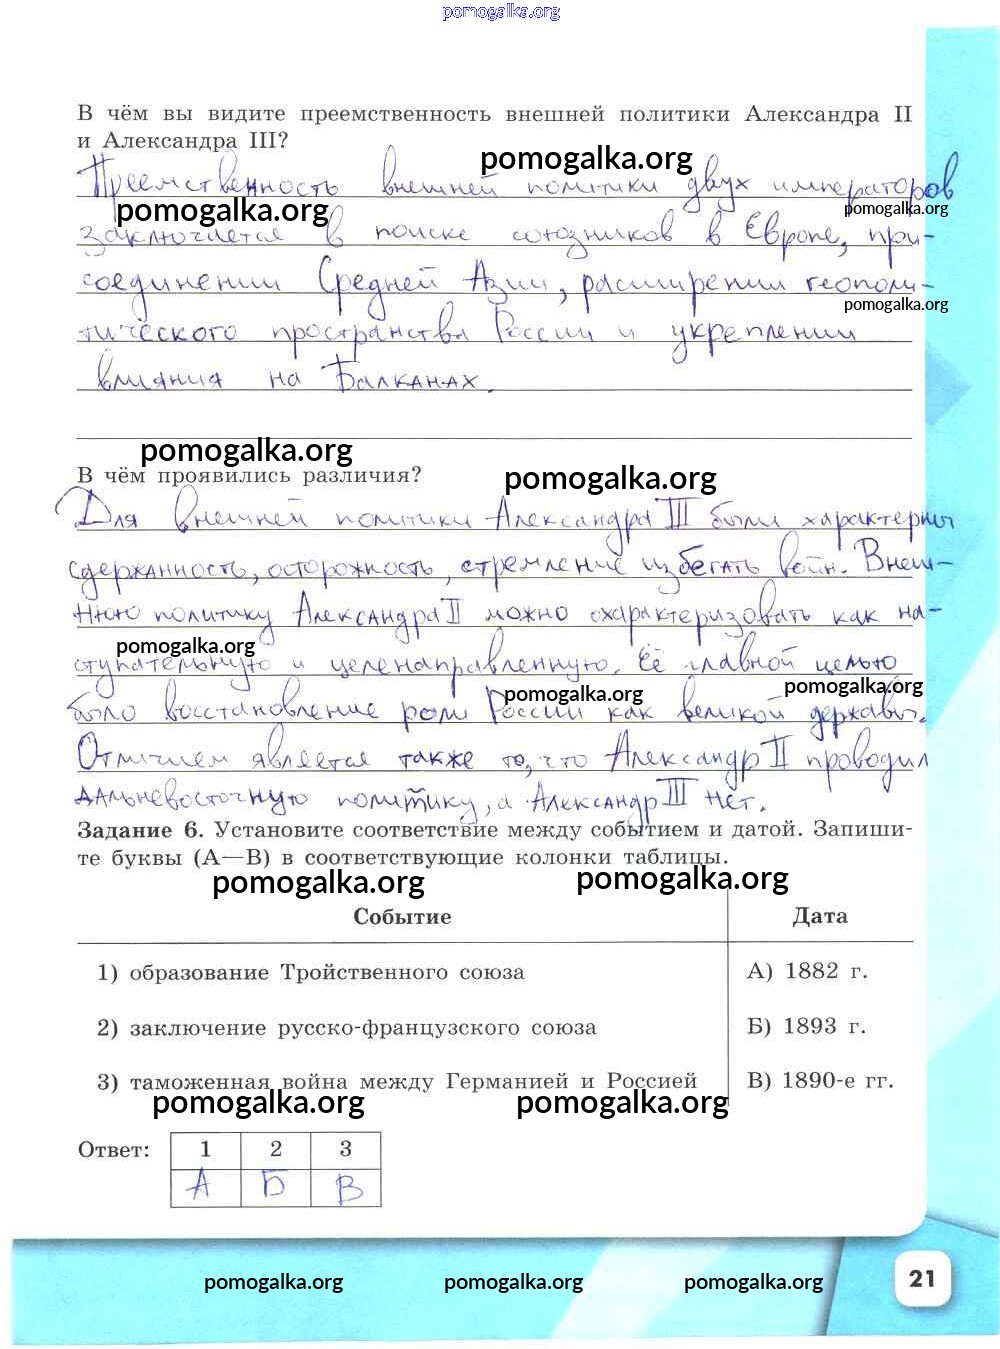 pomogalka.org
В чём вы видите преемственность внешней политики Александра II
и Александра III?
pomogalka.org
Преемственность внешней политики двух императоров
pomogalka.org
pomogalka.org
заключается в поиске союзников в Европе, при-
соединении Средней Азии, расширении геополи-
pomogalka.org
тического пространства России и укреплении
влияния на Балканах.
pomogalka.org
В чём проявились различия?
pomogalka.org
Для внешней политики Александра III были характерны
сдержанность, осторожность, стремление избегать войн. Внеш-
нюю политику Александра II можно охарактеризовать как на-
pomogalka.org
ступательную и целенаправленную. Её главной целью
pomogalka.org
pomogalka.org
было восстановление роли России как великой державы.
Отличием является также то, что Александр II проводил
дальневосточную политику, а Александр III нет.
Задание 6. Установите соответствие между событием и датой. Запиши-
те буквы (А—В) в соответствующие колонки таблицы.
pomogalka.org
pomogalka.org
Событие
Дата
1) образование Тройственного союза
А) 1882 г.
2) заключение русско-французского союза
Б) 1893 г.
3) таможенная война между Германией и Россией
В) 1890-е гг.
pomogalka.org
pomogalka.org
Ответ:
1 2 3
А Б В
pomogalka.org
pomogalka.org
pomogalka.org
21